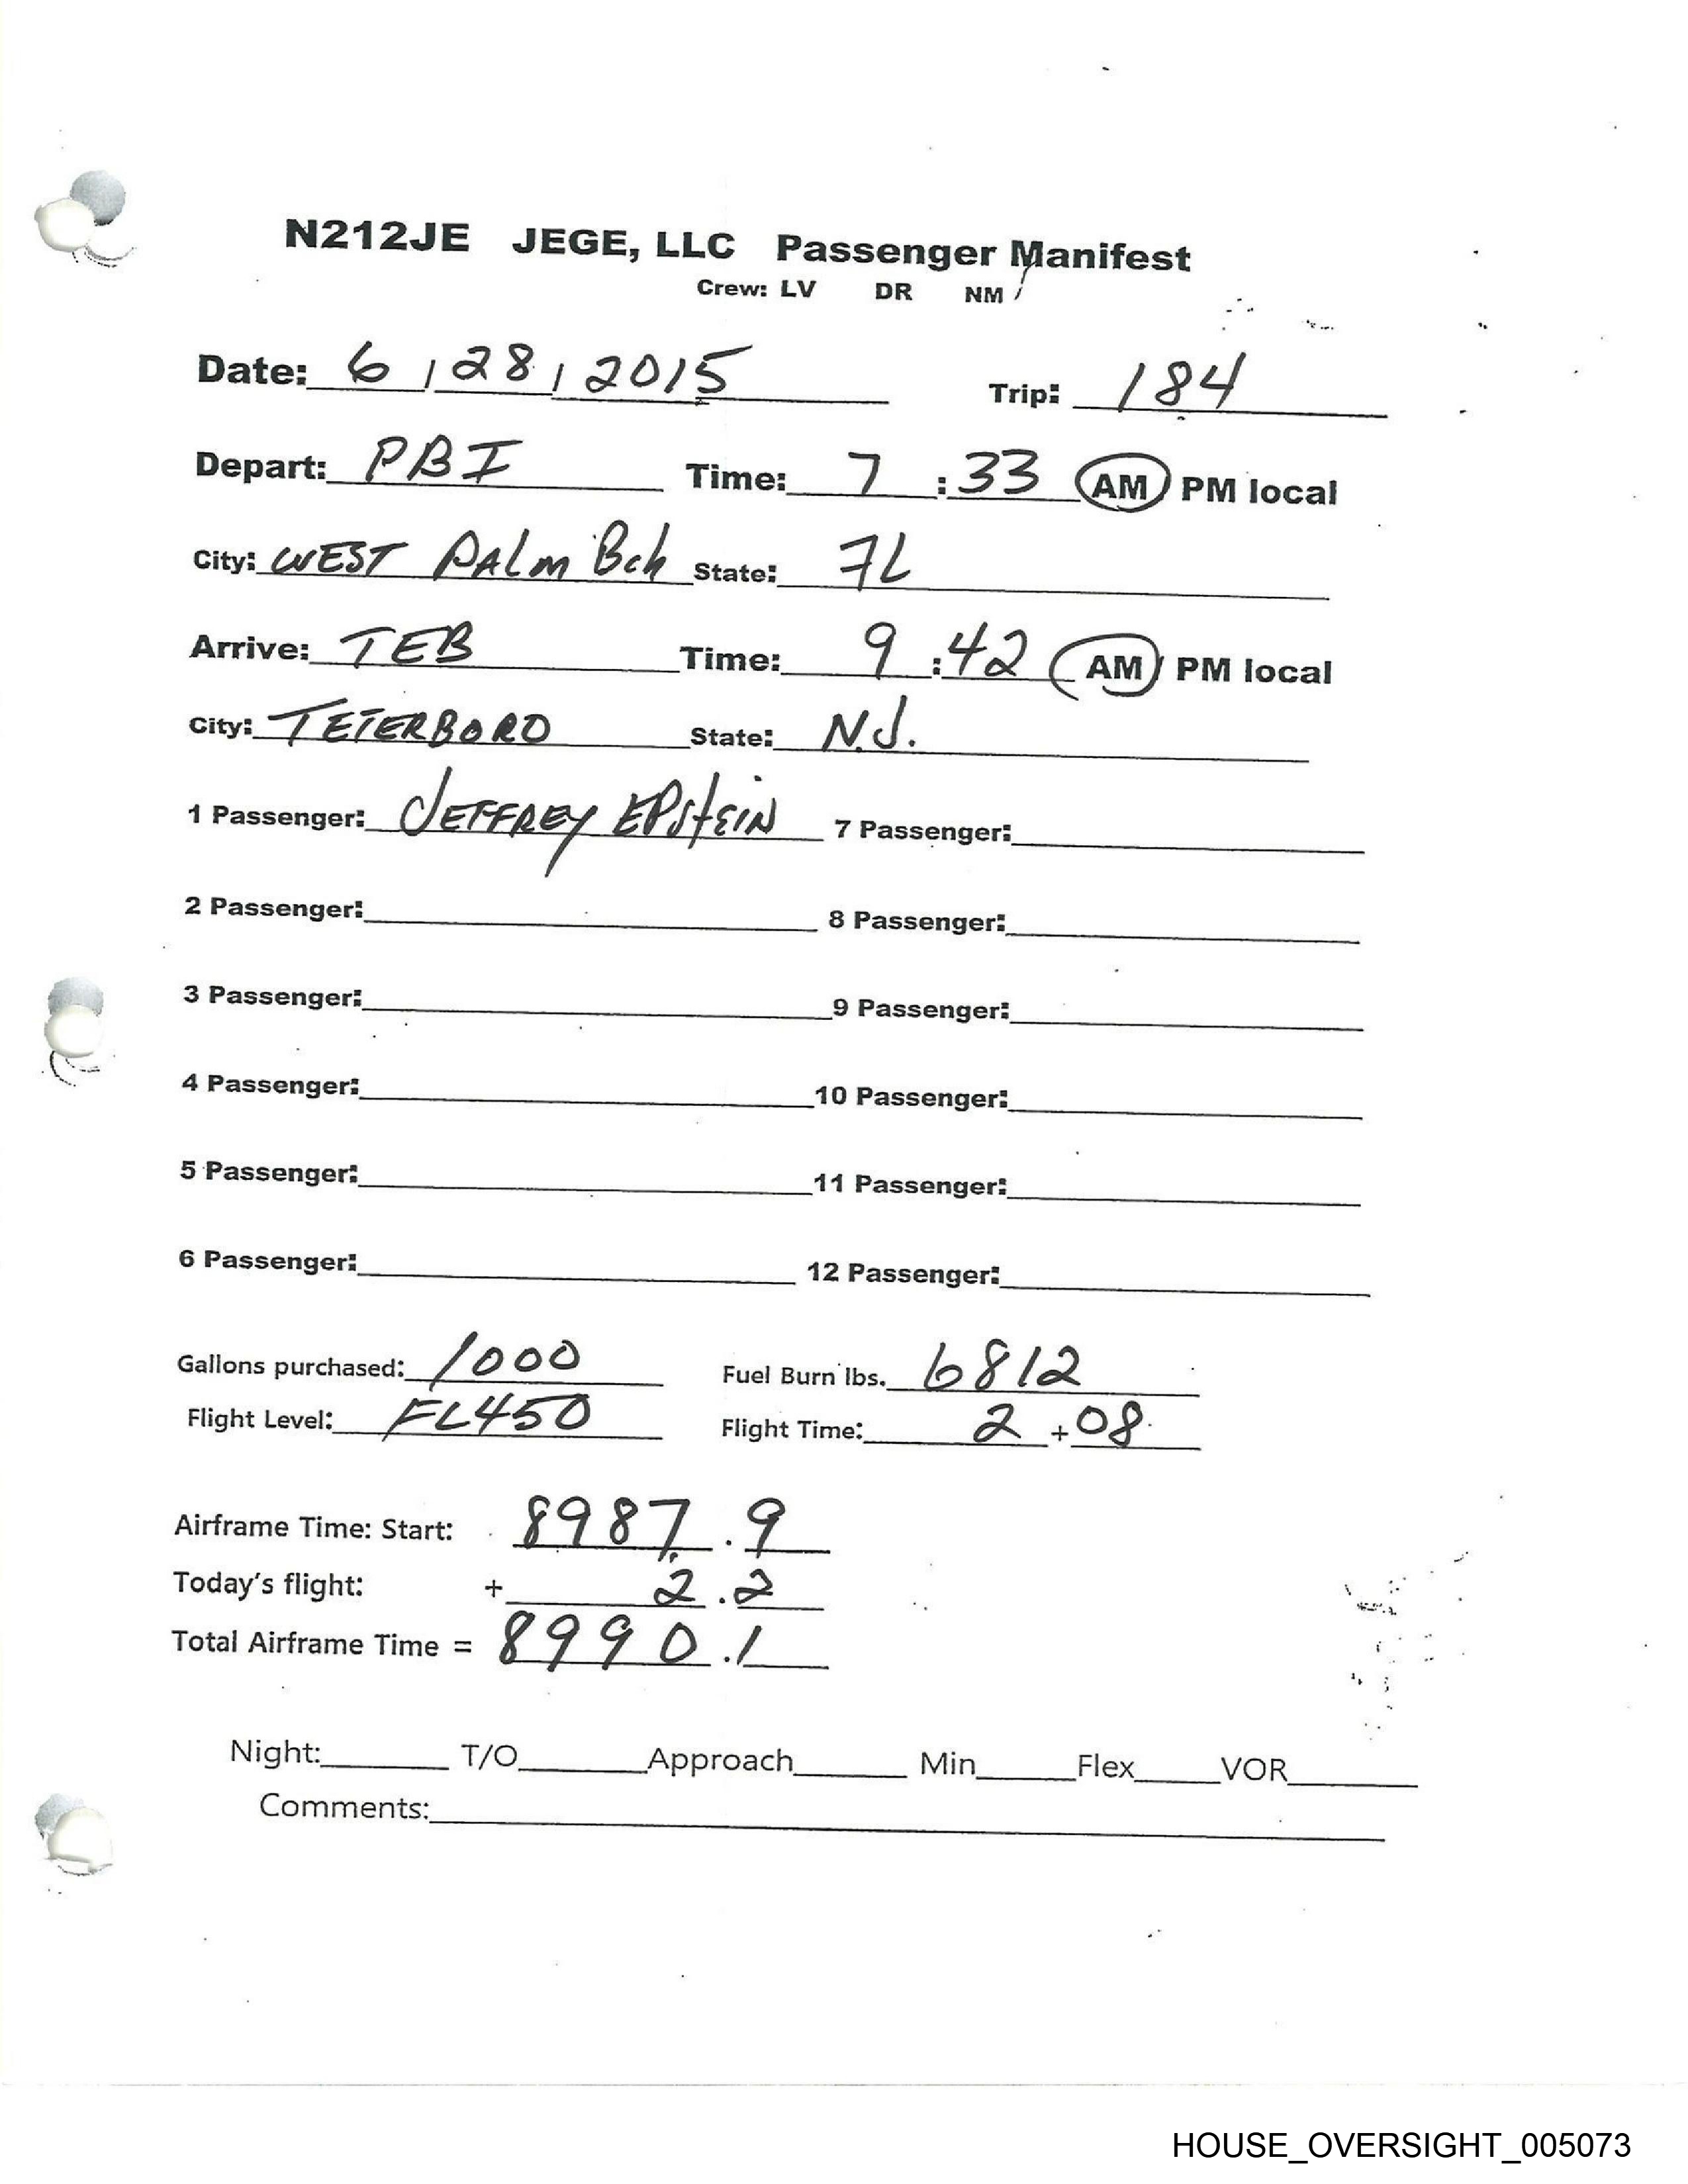 N212JE JEGE, LLC Passenger Manifest
Crew: LV DR NM
Date: 6 / 28 / 2015 Trip: 184
Depart: PBI Time: 7 : 33 AM / PM local
City: WEST PALM Bch State: FL
Arrive: TEB Time: 9 : 42 AM / PM local
City: TETERBORO State: N.J.
1 Passenger: JEFFREY EPSTEIN 7 Passenger:
2 Passenger: 8 Passenger:
3 Passenger: 9 Passenger:
4 Passenger: 10 Passenger:
5 Passenger: 11 Passenger:
6 Passenger: 12 Passenger:
Gallons purchased: 1000 Fuel Burn lbs. 6812
Flight Level: FL450 Flight Time: 2 + 08
Airframe Time: Start: 8987.9
Today's flight: + 2.2
Total Airframe Time = 8990.1
Night: T/O Approach Min Flex VOR
Comments:
HOUSE_OVERSIGHT_005073